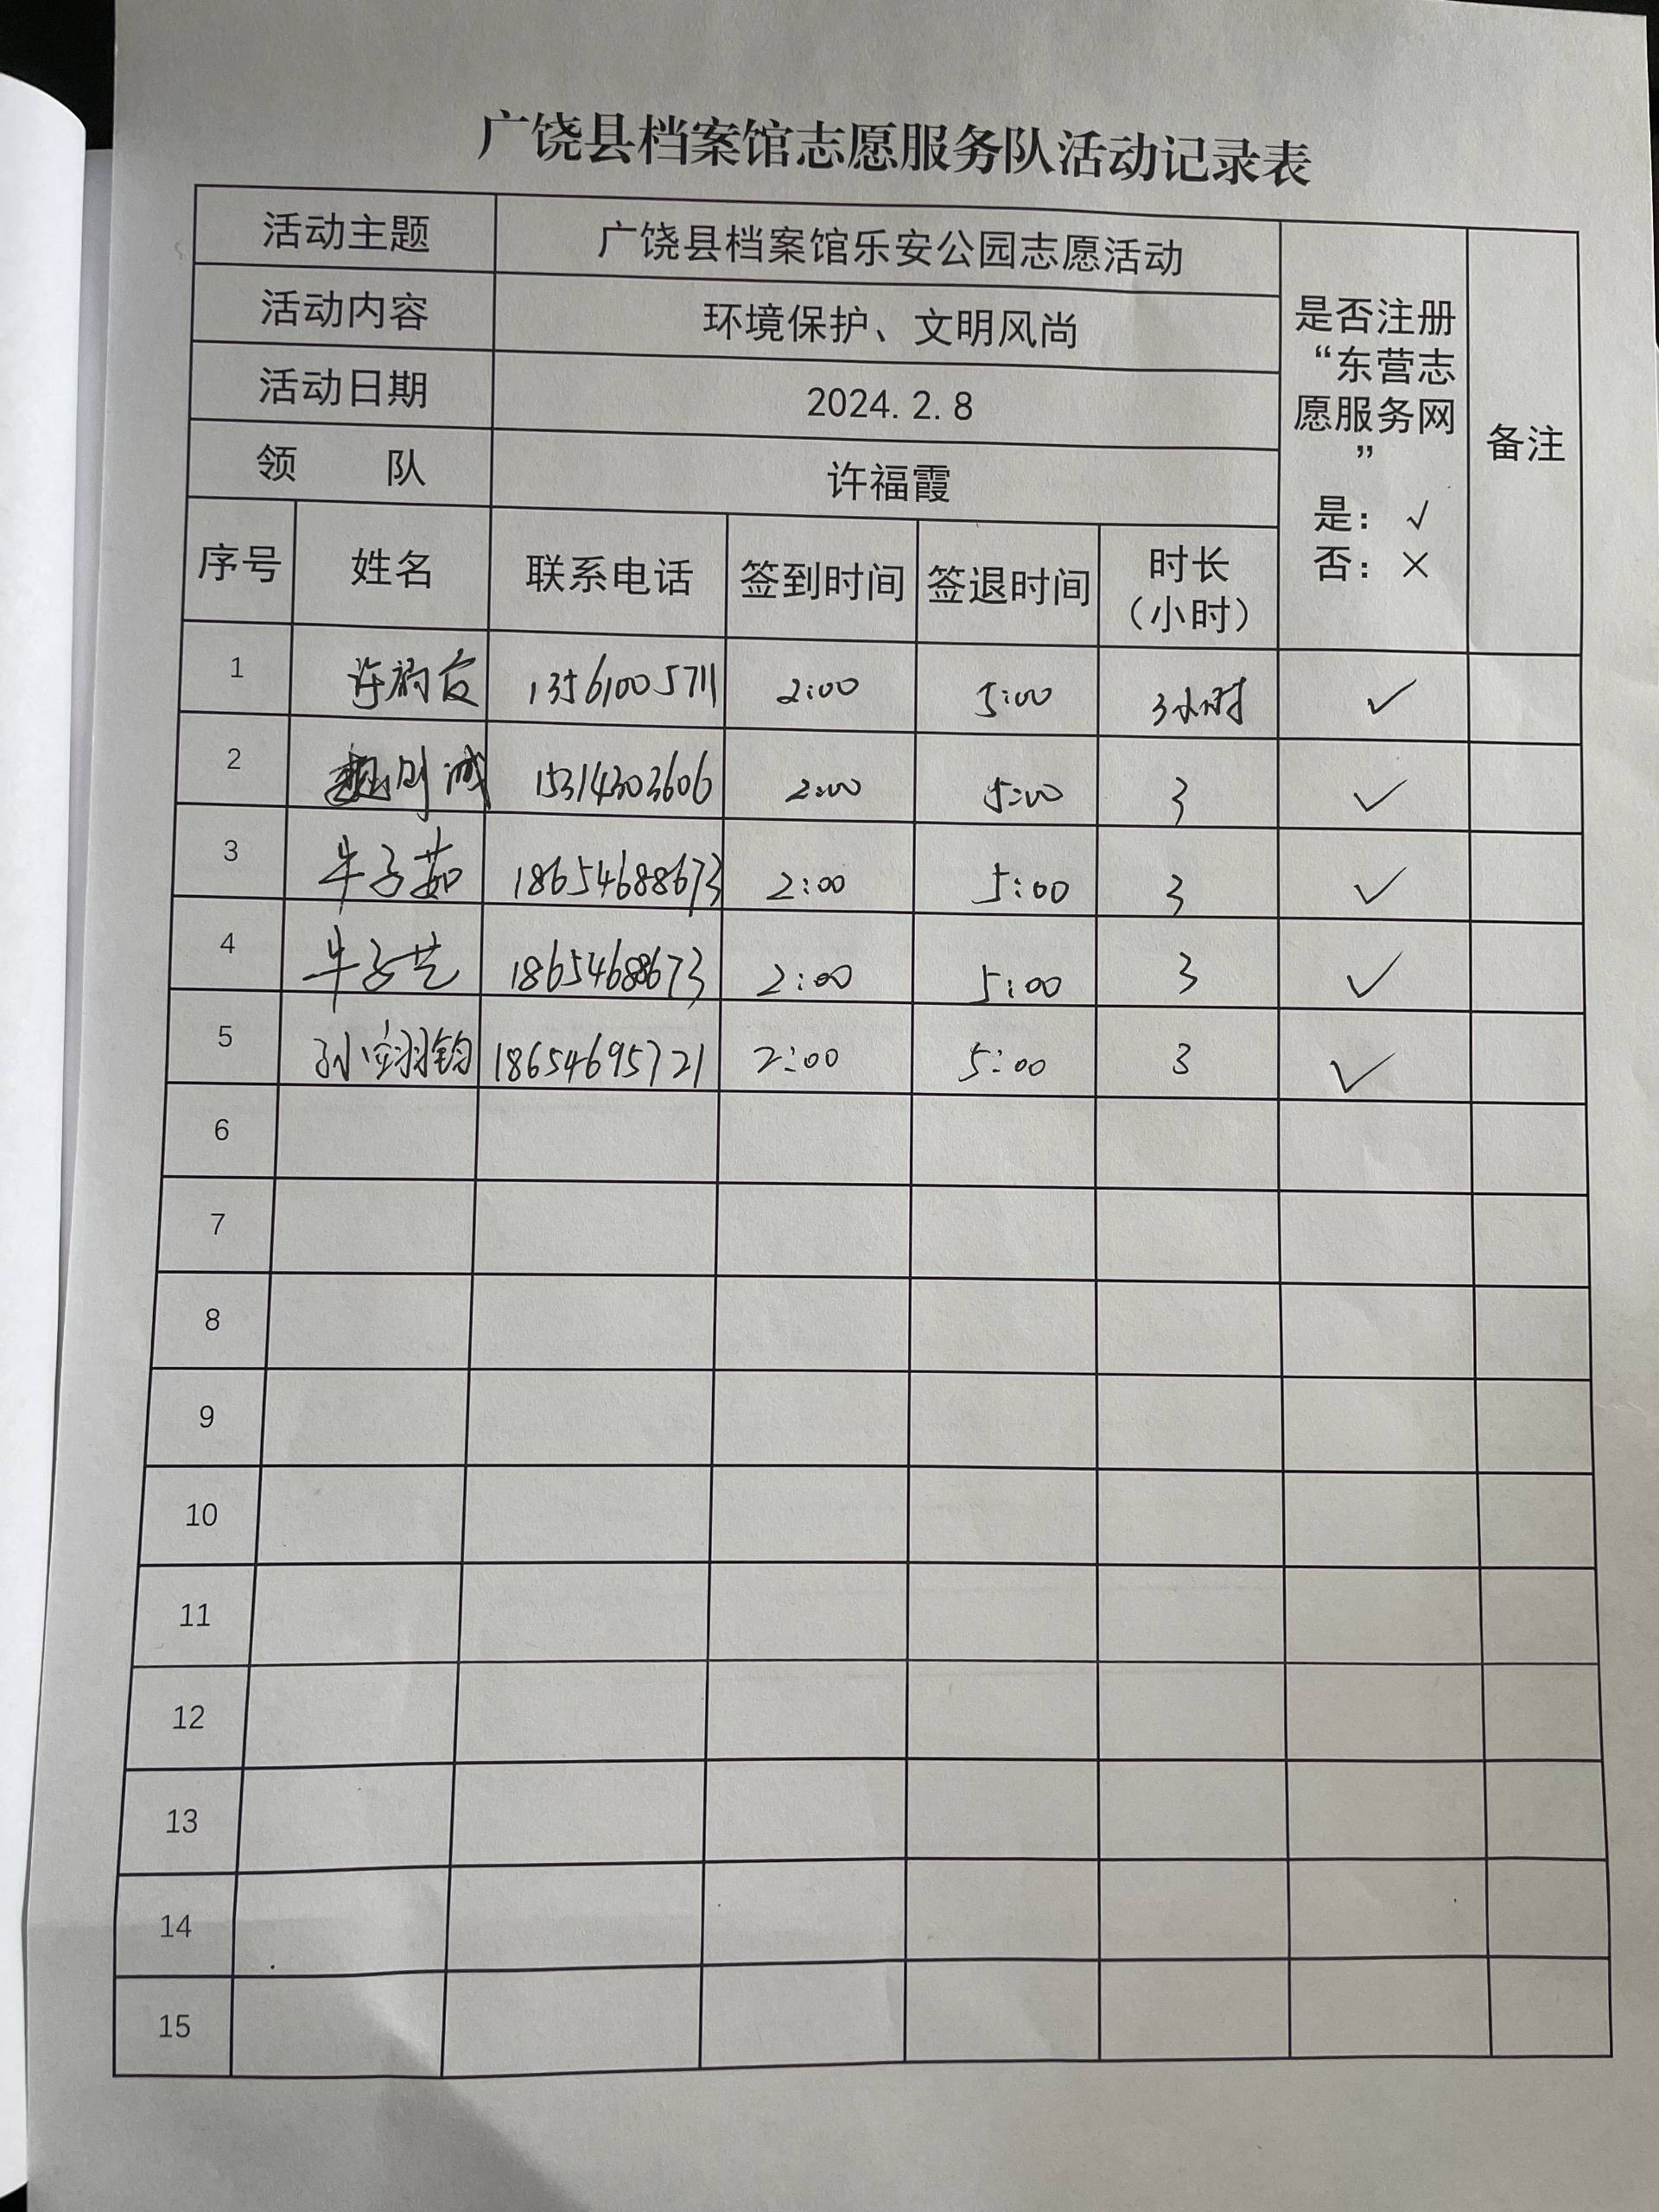 广饶县档案馆志愿服务队活动记录表
活动主题 广饶县档案馆乐安公园志愿活动 是否注册“东营志愿服务网” 是：√ 否：× 备注
活动内容 环境保护、文明风尚
活动日期 2024.2.8
领 队 许福霞
序号 姓名 联系电话 签到时间 签退时间 时长（小时）
1 许福霞 13561005711 2:00 5:00 3小时 ✓
2 15314303606 2:00 5:00 3 ✓
3 牛子茹 18654688673 2:00 5:00 3 ✓
4 牛子艺 18654688673 2:00 5:00 3 ✓
5 孙翊钧 18654695721 2:00 5:00 3 ✓
6
7
8
9
10
11
12
13
14
15